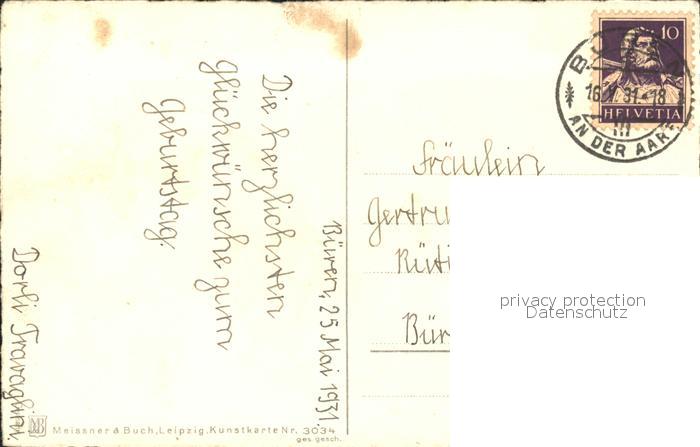 Büren, 25 Mai 1931.
Die herzlichsten
Glückwünsche zum
Geburtstag.
Dorli Travaglini
MB Meissner & Buch, Leipzig. Kunstkarte Nr. 3034
ges. gesch.
10
HELVETIA
AN DER AARE
Fräulein
Gertru
Rüti
Bür
privacy protection
Datenschutz